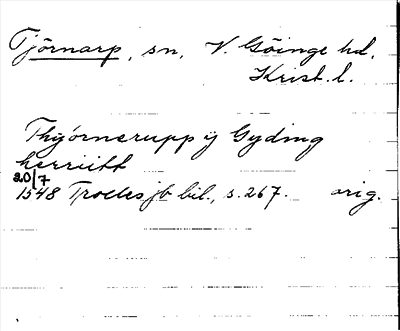 Tjörnarp, sn, V. Göinge hd,
Krist. l.
Thyørnerupp ij Gyding
herriitt
20/7
1548 Troels jb bil., s. 267. orig.